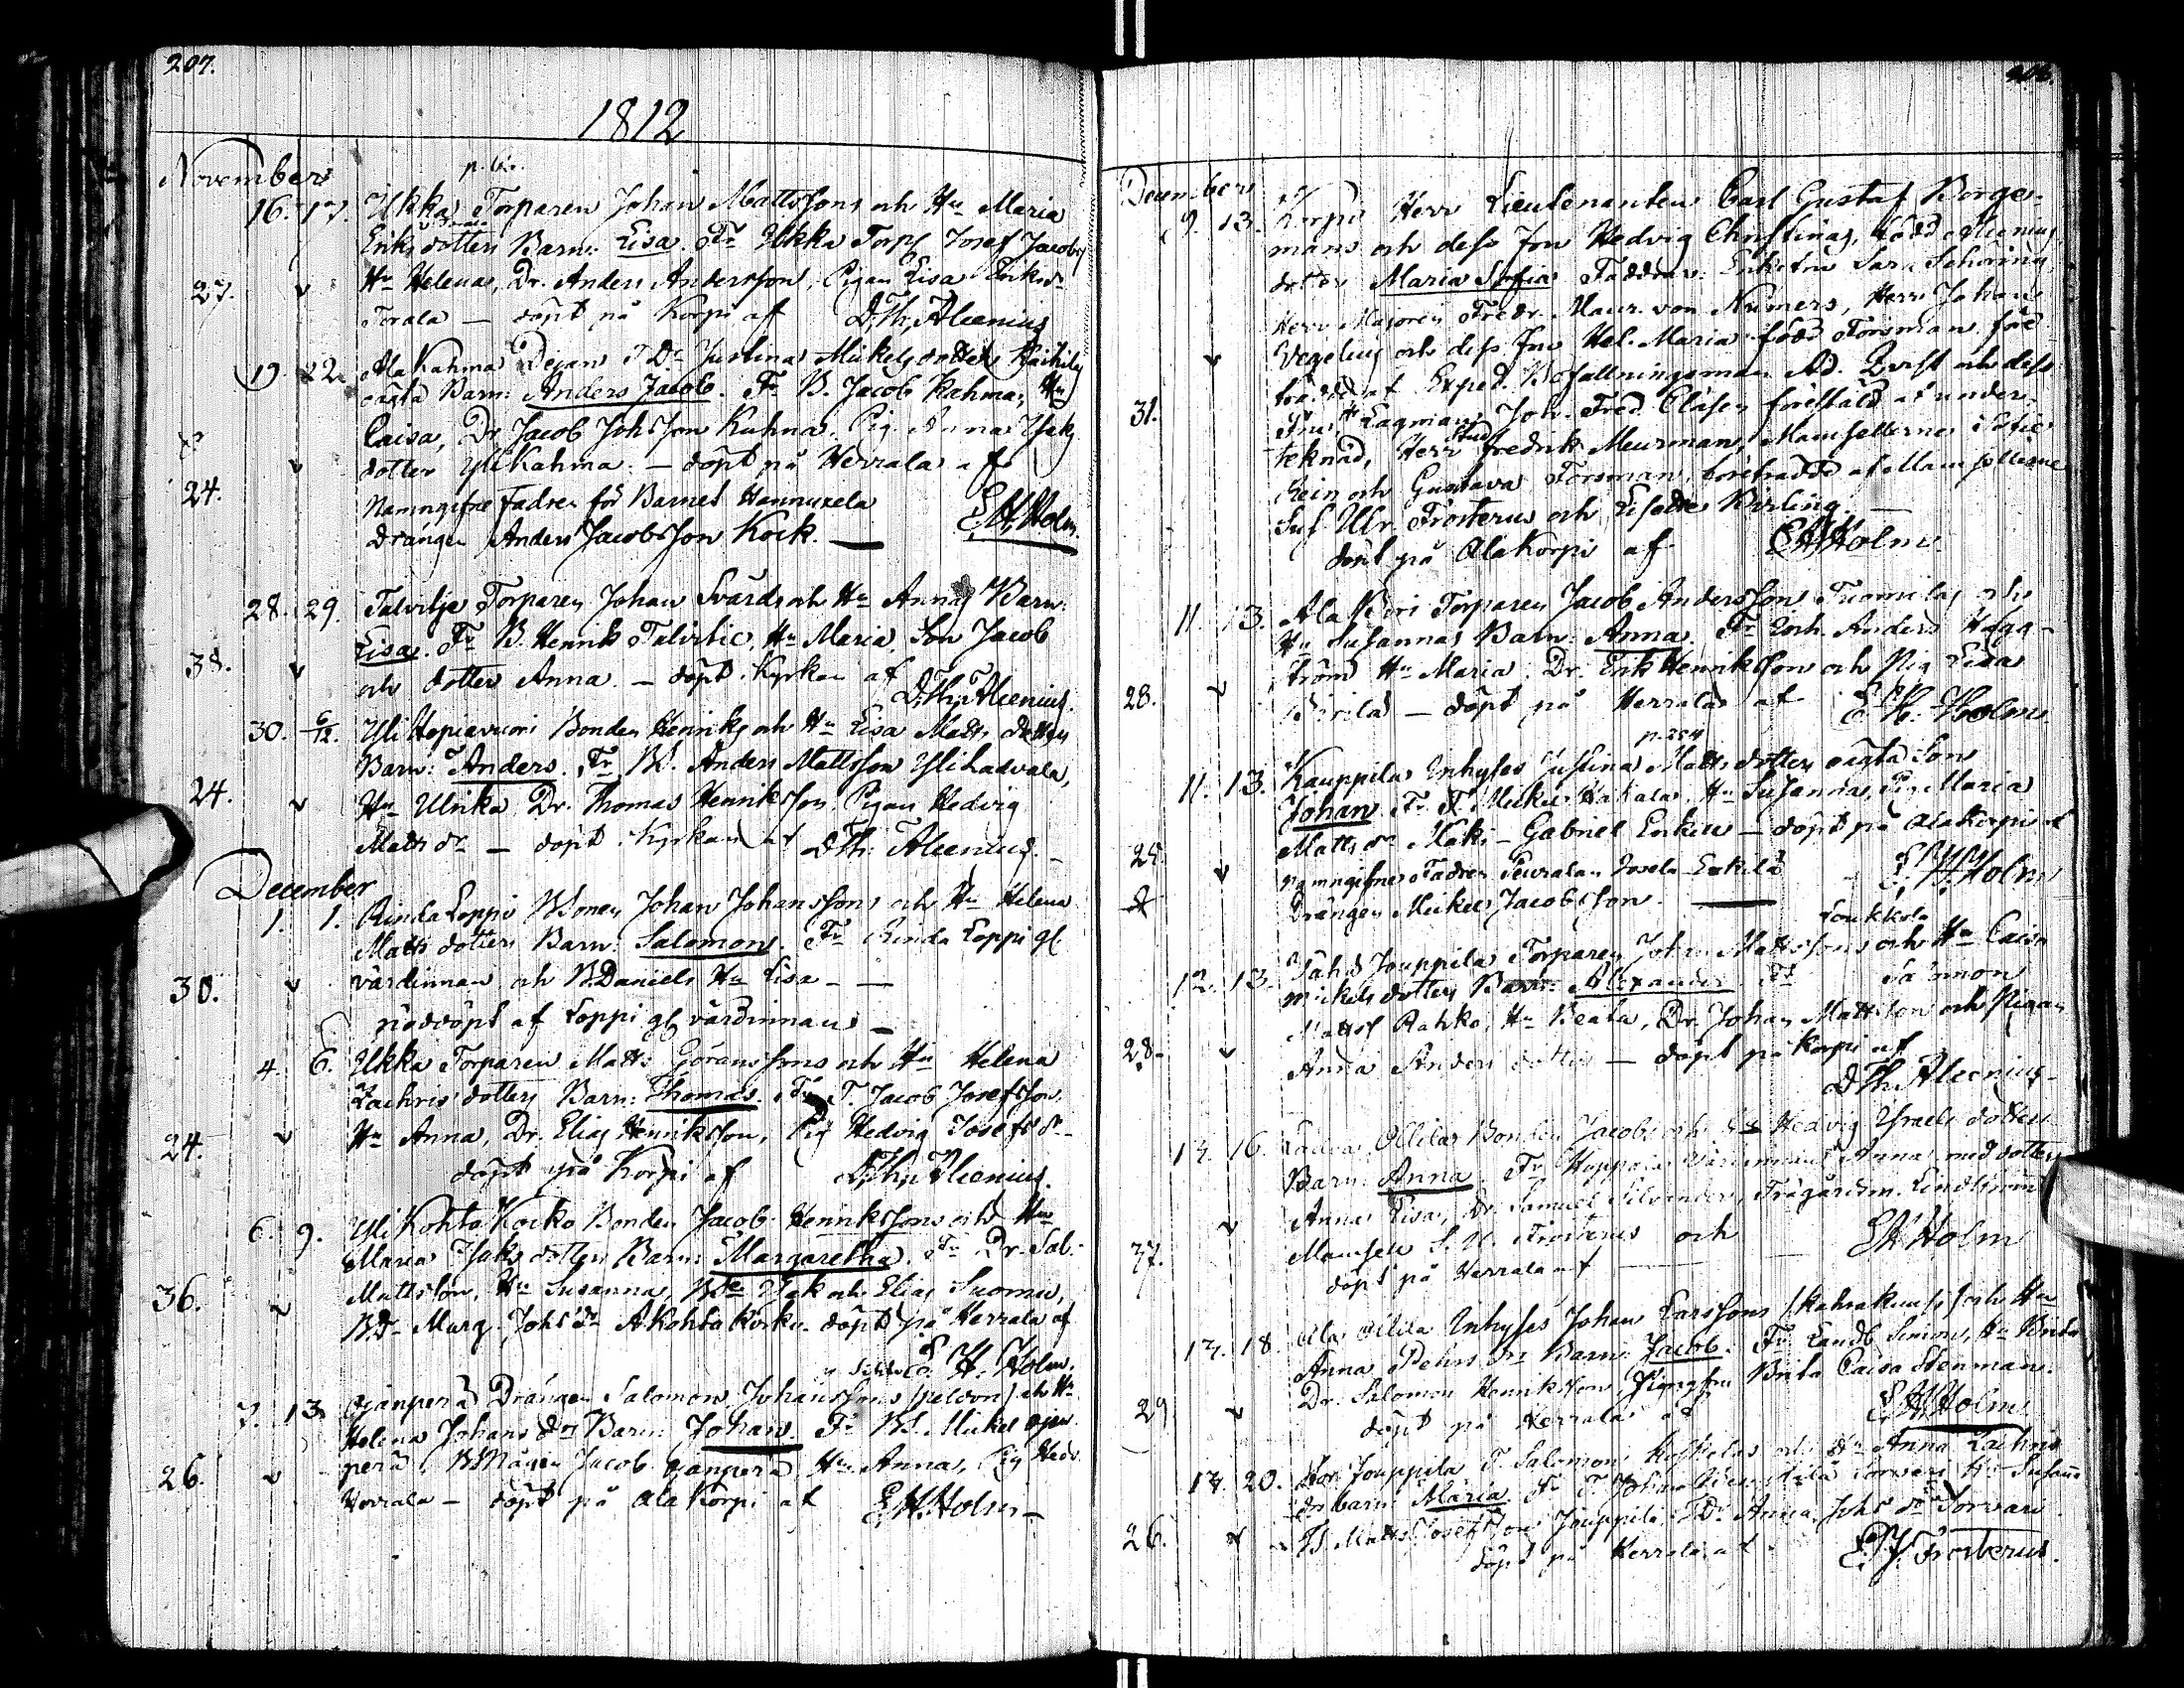 207.
1812
November
p. 62.
16. 17. Ukka Torparen Johan Mattssons och Hu Maria
Eriksdotters Barn: Lisa. Fr Ukka Torp Josef Jacobs
27. Hu Helena, Dr. Anders Andersson, Pigan Lisa Eriksdr
Torala — döpt på Korpi af D.Th. Alcenius
19 22 Ala Kahma Pigan Justina Mickelsdotters
oägta Barn: Anders Jacob. Fr B. Jacob Kahma, Hu
Caisa, Dr Jacob Johsson Kahma, Pig. Anna
dotter Yli Kahma. — döpt på Herrala af
24. Namngifne Fadren för Barnet Hannuxela
Drängen Anders Jacobsson Kock. — E.H. Holm.
28. 29. Talvitje Torparen Johan Svärds och Hu Annas Barn:
Lisa. Fr B. Henrik Talvitie, Hu Maria, Son Jacob
38. och dotter Anna. — döpt i Kyrkan af
D.Th. Alcenius.
30. 6/12. Yli Hopiavuori Bonden Henriks och Hu Lisa Matts dotters
Barn: Anders. Fr Bd. Anders Mattsson Ylihadvala,
24. Hu Ulrika, Dr. Thomas Henriksson, Pigan Hedvig
Matts dr — döpt i Kyrkan af D.Th. Alcenius. —
December
1. 1. Rinda Loppi Johan Johanssons och Hu Helena
Matts dotters Barn: Salomon. Fr Rinda Loppi gl.
30. värdinnan och B. Daniels Hu Lisa — —
nöddöpt af Loppi gl värdinnan —
4. 6. Ukka Torparen Matts Göranssons och Hu Helena
Zachris dotters Barn: Thomas. Fr T. Jacob Josefsson
24. Hu Anna, Dr. Elias Henriksson, Pig Hedvig Josefsdr —
döpt på Korpi af D.Th. Alcenius.
6. 9. Yli Kohta Koko Bonden Jacob Henrikssons och Hu
Maria Isaks dotters Barn: Margaretha. Fr Dr. Sal.
36. Mattsson, Hu Susanna, Isak och Elias Suomu,
Bd. Marg. Johs dr döpt på Herrala af
E. H. Holm.
7. 13. Ojanperä Drängen Salomon Johanssons och Hu
Helena Johans dr Barn: Johan. Fr Bd. Mickel Ojan
26. perä, B Mågen Jacob Ojanperä Hu Anna, Pig Hedv.
Herrala — döpt på Ala Korpi af E.H. Holm —
December
9. 13. Korpi Herr Lieutenanten Carl Gustaf Borge-
mans och dess Fru Hedvig Christinas, född
dotter Maria Sofia Faddrar: Enkefru Sara Schöring
Herr Majoren Fredr. Maur. von Numers, Herr Johan
Vegelius och dess Fru Hel. Maria född Forsman före
trädd af Exped. Befallningsman Ad. Qvist och dess
31. Fru, Hr Lagman Joh. Fred. Clasen förestäld af under-
teknad, Herr Stud Fredrik Meurman, Mamsellerne Sofie
Hein och Gustava Forsman, företrädde af Mamsellerne
Sus Ulr. Frosterus och Lisette Kyrling. —
döpt på Ala Korpi af E.H. Holm.
11. 13. Ala Biri Torparen Jacob Anderssons Tuomilas och
Hu Susannas Barn: Anna. Fr Anders Hägg-
ström Hu Maria, Dr. Erik Henriksson och Pig Lisa
28. — döpt på Herrala af E.H. Holm.
p. 204
11. 13. Kauppila Inhyses Justina Matts dotters oägta Son
Johan. Fr T. Mickel Hakala, Hu Susanna, Pig Maria
Matts dr Mäki — Gabriel — döpt på Ala Korpi af
25. namngifne Fadren E.H. Holm
Drängen Mickel Jacobsson. —
Loukkola
12. 13. Jouppila Torparen Johan Mattssons och Hu Caisa
Mickels dotters Barn: Alexander. Fr
Mattss Rahko, Hu Beata, Dr. Johan Mattsson och Pigan
28. Anna Anders dotter — döpt på Korpi af
D.Th. Alcenius —
14. 16. Ollila Bonden Jacobs och Hu Hedvig Israels dotters
Barn: Anna. Fr värdinnan Anna med dotter
Anna Lisa, Dr. Samuel Silvander, Trägårdsm. Lindström
37. Mamsell S. U. Frosterus och
döpt på Herrala af E.H. Holm
14. 18. Ala Ollila Inhyses Johan Larssons och Hu
Anna Pehrs dr Barn: Jacob. Fr Landb Simon, Hu Brita
29 Dr. Salomon Henriksson, Jungfru Brita Caisa Stenman.
döpt på Herrala af E.H. Holm
14. 20. Jouppila T. Salomon och Hu Anna Zachris
dr barn: Maria. Fr T. Johan Torvari Hu Susanna
26. Bd. Matts Josefsson Jouppila, Dr Anna Johs dr Torvari
döpt på Herrala af E.J. Frosterus.